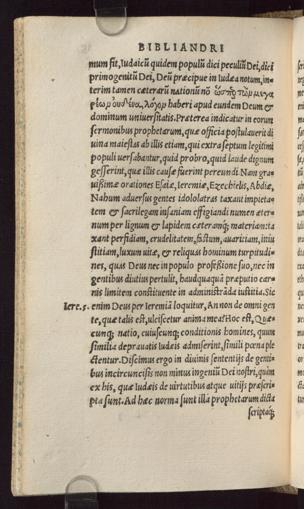 BIBLIANDRI
mum sit, Iudaicũ quidem populũ dici peculiũ Dei, dici
primogenitũ Dei, Deũ præcipue in Iudæa notum, in=
terim tamen cæterarũ nationũ nõ
haberi apud eundem Deum &
dominum uniuersitatis. Præterea indicatur in eorum
sermonibus prophetarum, quæ officia postulauerit di
uina maiestas ab illis etiam, qui extra septum legitimi
populi uersabantur, quid probro, quid laude dignum
gesserint, quæ illis causæ fuerint pereundi. Nam gra
uißimæ orationes Esaiæ, Ieremiæ, Ezechielis, Abdiæ,
Nahum aduersus gentes idololatras taxant impieta=
tem & sacrilegam insaniam effigiandi numen æter=
num per lignum & lapidem cæteramq; materiam: ta
xant perfidiam, crudelitatem, fastum, auaritiam, iniu
stitiam, luxum uitæ, & reliquas hominum turpitudi=
nes, quas Deus nec in populo profeßione suo, nec in
gentibus diutius pertulit, haudquaquã præputio car=
nis limitem constituente in administrãda iustitia. Sic
Iere. 5. enim Deus per Ieremiã loquitur, An non de omni gen
te, quæ talis est, ulciscetur anima mea? Hoc est, Quæ
cunq; natio, cuiuscunq; conditionis homines, quum
similia deprauatis Iudæis admiserint, simili pœna ple
ctentur. Discimus ergo in diuinis sententijs de genti
bus incircuncisis non minus ingeniũ Dei nostri, quàm
ex his, quæ Iudæis de uirtutibus atque uitijs præscri=
pta sunt. Ad hæc norma sunt illa prophetarum dicta
scriptaq;